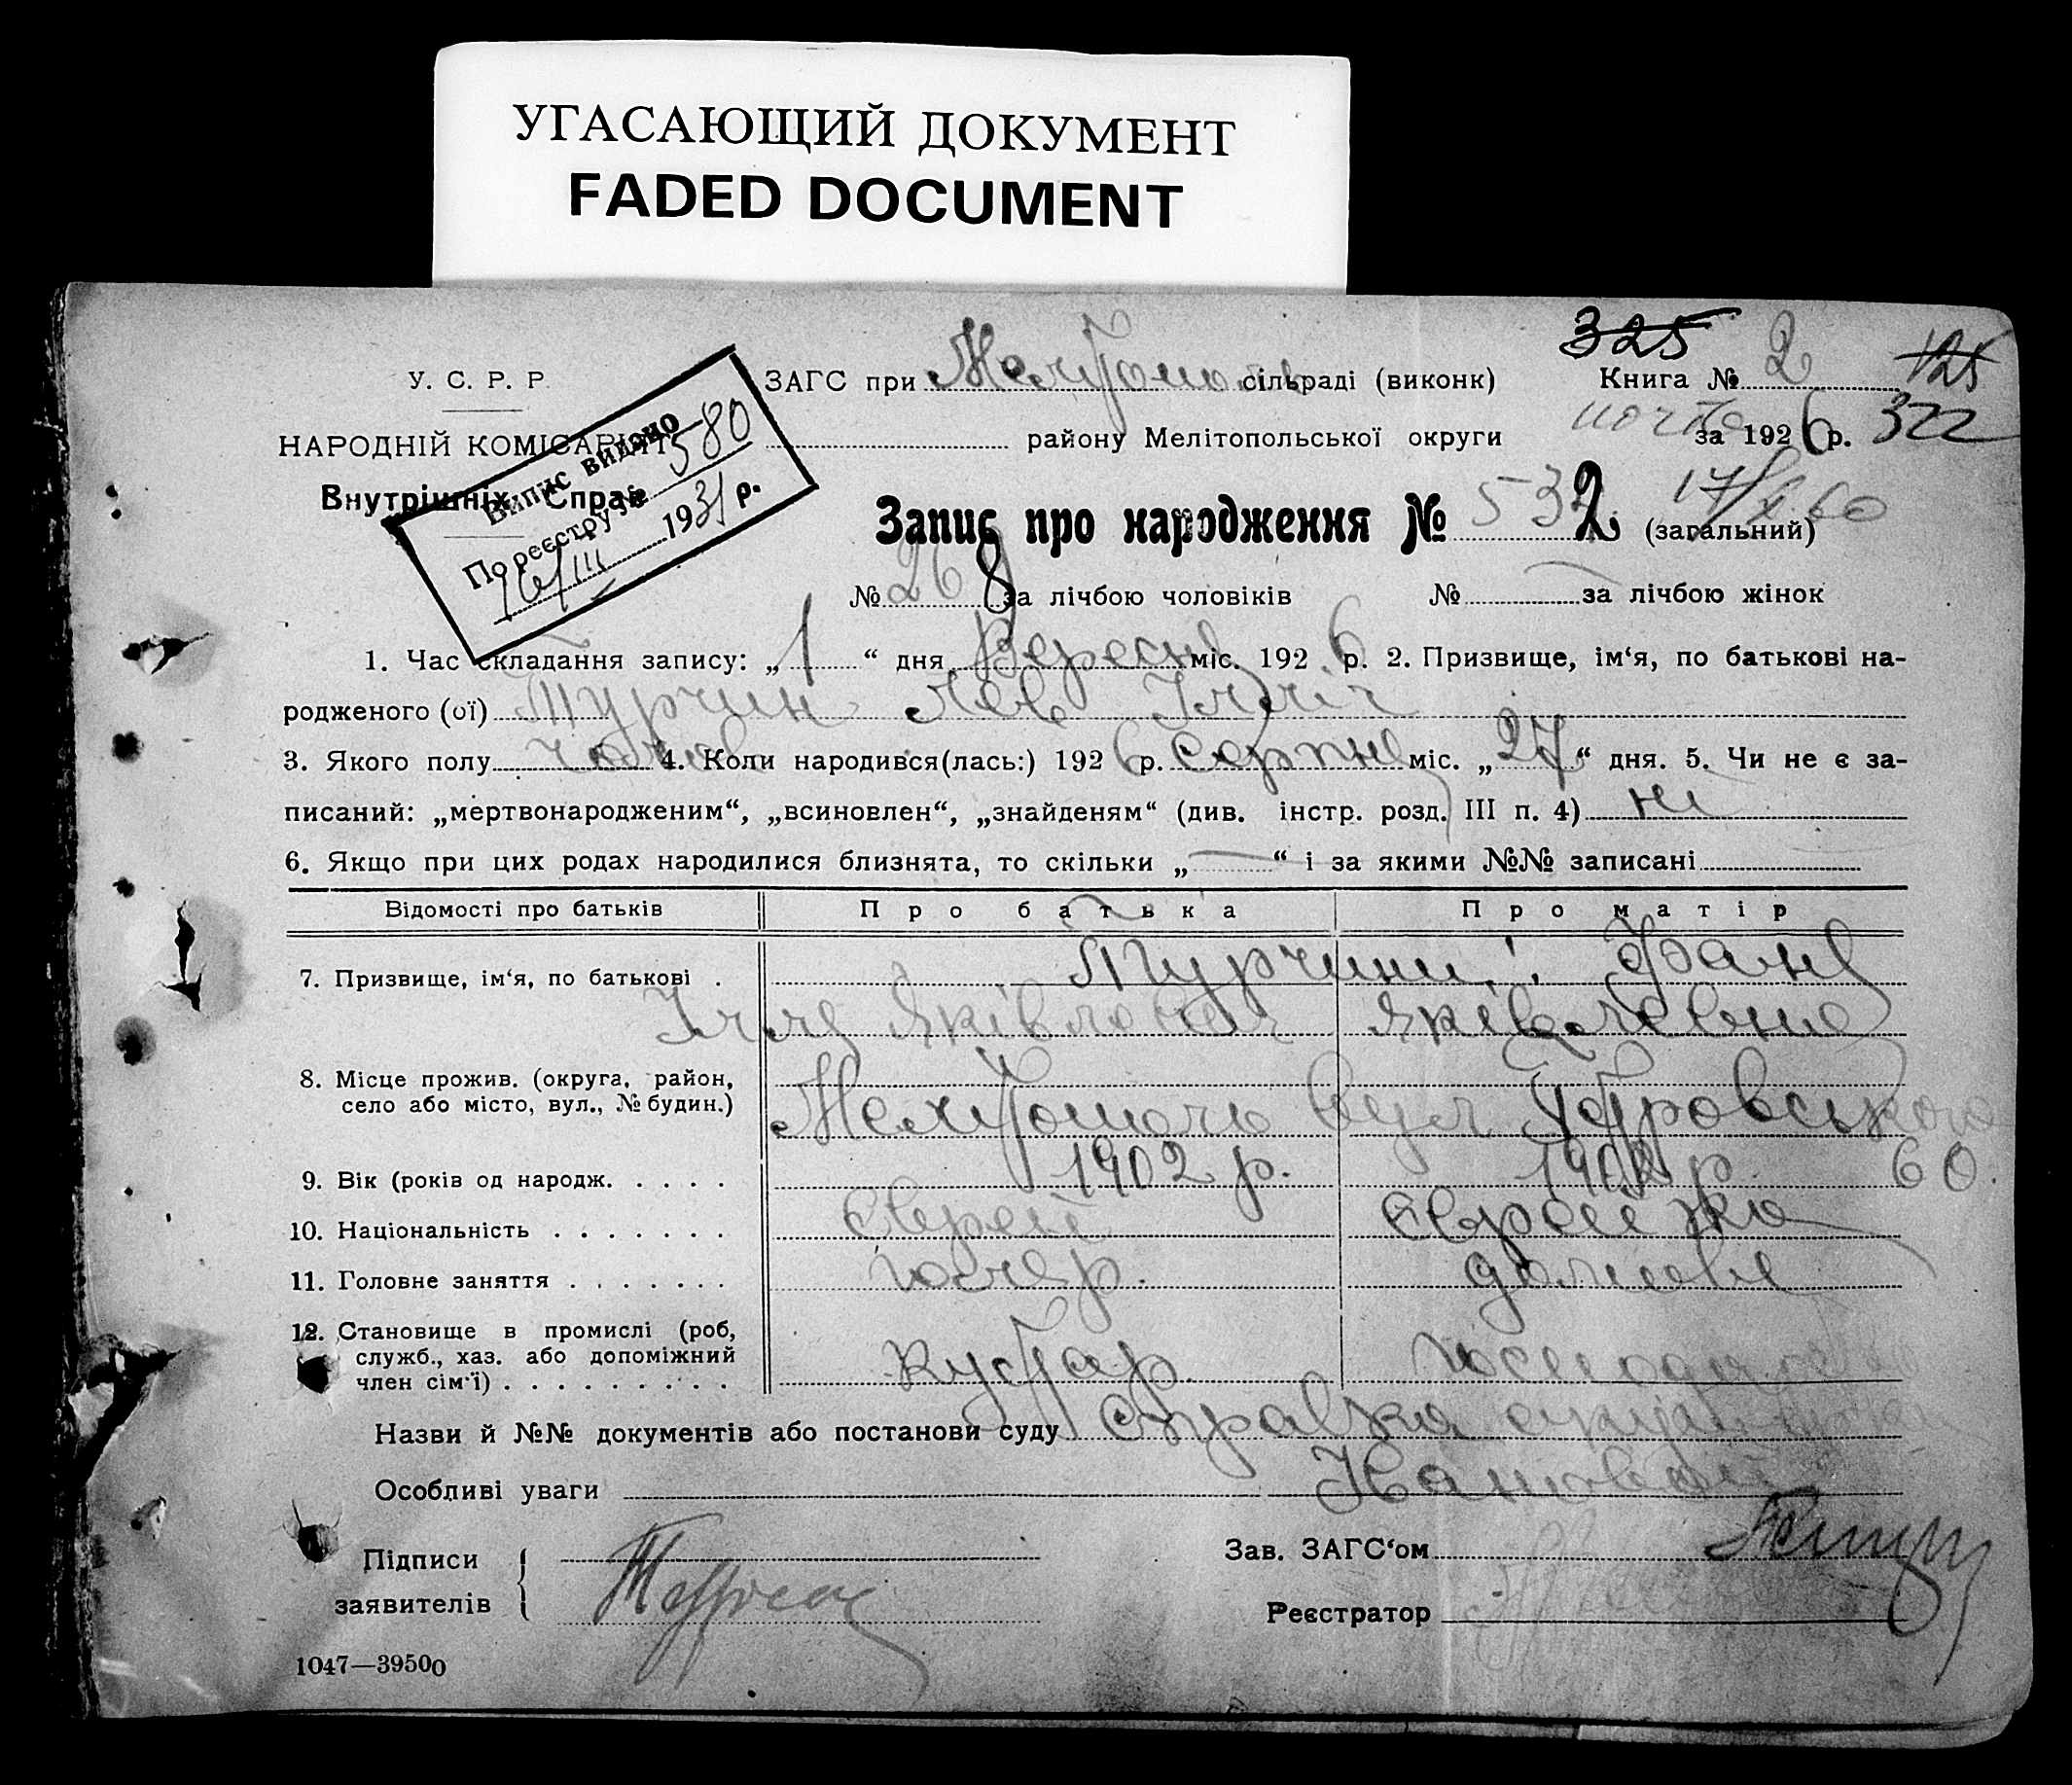 УГАСАЮЩИЙ ДОКУМЕНТ
FADED DOCUMENT
325
У. С. Р. Р.
ЗАГС при Мелітополь сільраді (виконк)
Книга № 2 125
НАРОДНІЙ КОМІСАРІЯТ
району Мелітопольської округи
за 1926 р. 322
Внутрішніх Справ
Випис видано
По реєстру № 580
16/III 1931 р.
Запис про народження № 532 (загальний)
№ 268 за лічбою чоловіків № за лічбою жінок
1. Час складання запису: „ 1 “ дня Вересня міс. 192 6 р. 2. Призвище, ім‘я, по батькові на-
родженого (ої) Турчин Лев Ілліч
3. Якого полу чолов 4. Коли народився(лась:) 192 6 р. Серпня міс. „ 27 “ дня. 5. Чи не є за-
писаний: „мертвонародженим“, „всиновлен“, „знайденям“ (див. інстр. розд. III п. 4) ні
6. Якщо при цих родах народилися близнята, то скільки „ — “ і за якими №№ записані
Відомості про батьків Про батька Про матір
7. Призвище, ім‘я, по батькові . Турчини: Фаня
Ілля Яківлович Яківлевна
8. Місце прожив. (округа, район,
село або місто, вул., № будин.)
Мелітополь вул
9. Вік (років од народж. . . . . 1902 р. 1902 р. 60.
10. Національність . . . . . . . Єврей Єврейка
11. Головне заняття . . . . . . . домове
12. Становище в промислі (роб,
служб., хаз. або допоміжний
член сім‘ї) . . . . . . . . . кустар.
Назви й №№ документів або постанови суду Справка
Особливі уваги
Підписи
заявителів
Зав. ЗАГС‘ом
Реєстратор
1047—39500